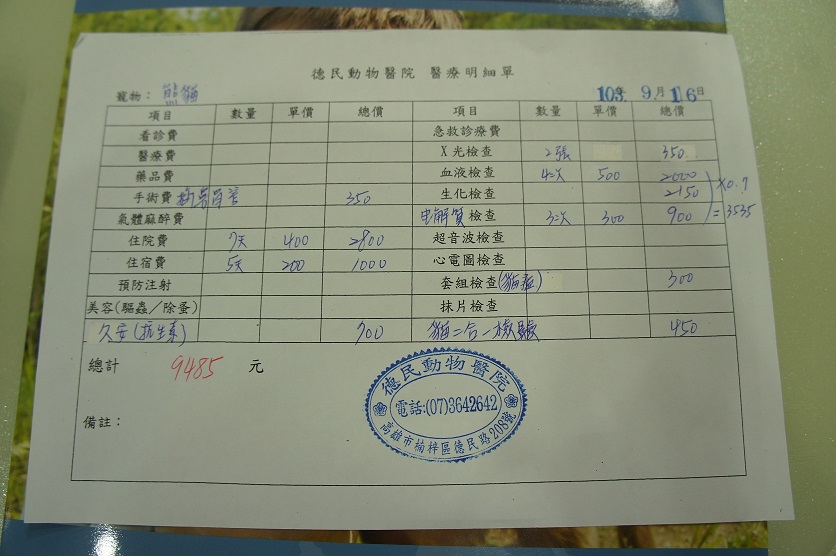 德民動物醫院 醫療明細單
寵物： 熊貓 103年 9月 16日
項目 數量 單價 總價 項目 數量 單價 總價
看診費 急救診療費
醫療費 X光檢查 2張 350
藥品費 血液檢查 4次 500 2000
手術費 350 生化檢查 2150 ×0.7
氣體麻醉費 电解質檢查 3次 300 900 =3535
住院費 7天 400 2800 超音波檢查
住宿費 5天 200 1000 心電圖檢查
預防注射 套組檢查(貓瘟) 300
美容(驅蟲／除蚤) 抹片檢查
久安(抗生素) 700 貓二合一檢驗 450
總計 9485 元
備註：
德民動物醫院
電話:(07)3642642
高雄市楠梓區德民路208號